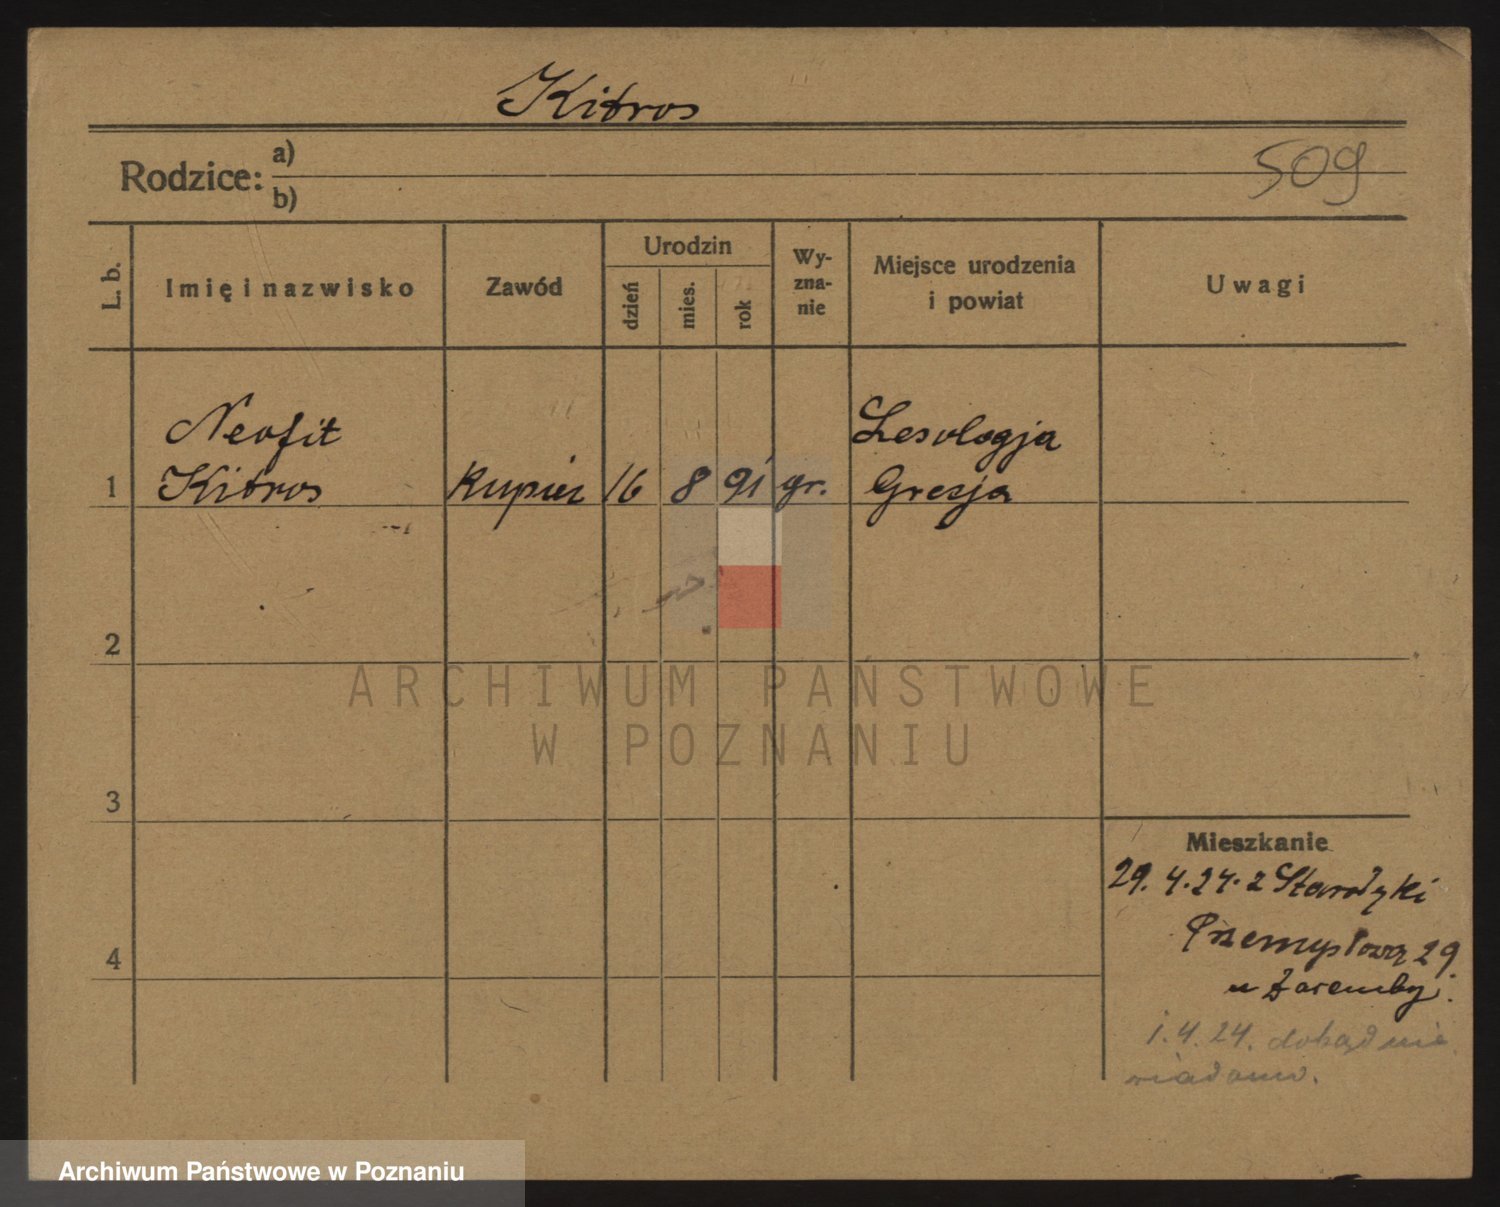 Kitros
Rodzice: a)
b)
509
L. b.
Imię i nazwisko
Zawód
Urodzin
dzień
mies.
rok
Wy-
zna-
nie
Miejsce urodzenia
i powiat
Uwagi
1
Neofit
Kitros
Kupiec
16
8
91
gr.
Grecja
2
3
4
Mieszkanie
29. 4. 24. z
Przemysłowa 29.
u Zaremby.
1. 4. 24. dokąd nie
wiadomo.
ARCHIWUM PAŃSTWOWE
W POZNANIU
Archiwum Państwowe w Poznaniu